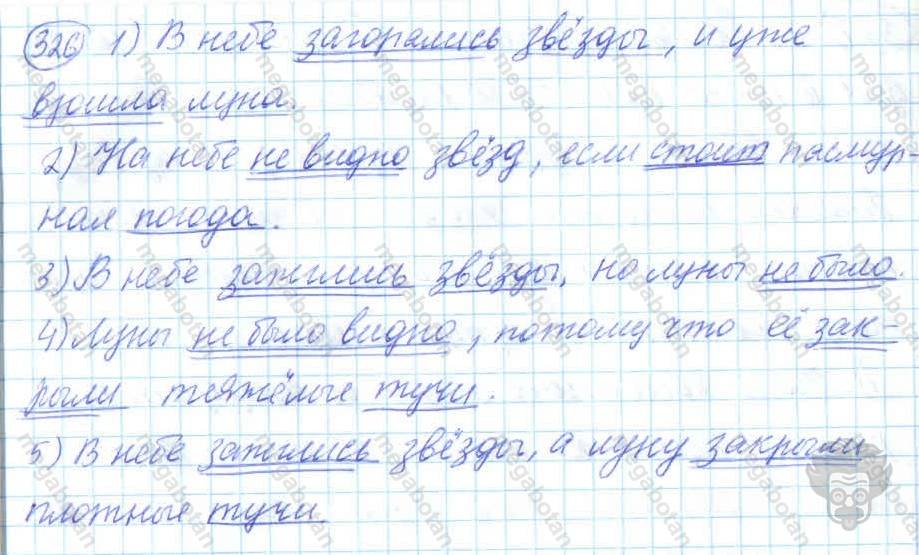 326 1) В небе загорались звёзды, и уже
взошла луна.
2) На небе не видно звёзд, если стоит пасмур-
ная погода.
3) В небе зажглись звёзды, но луны не было.
4) Луны не было видно, потому что её зак-
рыли тяжёлые тучи.
5) В небе зажглись звёзды, а луну закрыли
плотные тучи.
megabotan